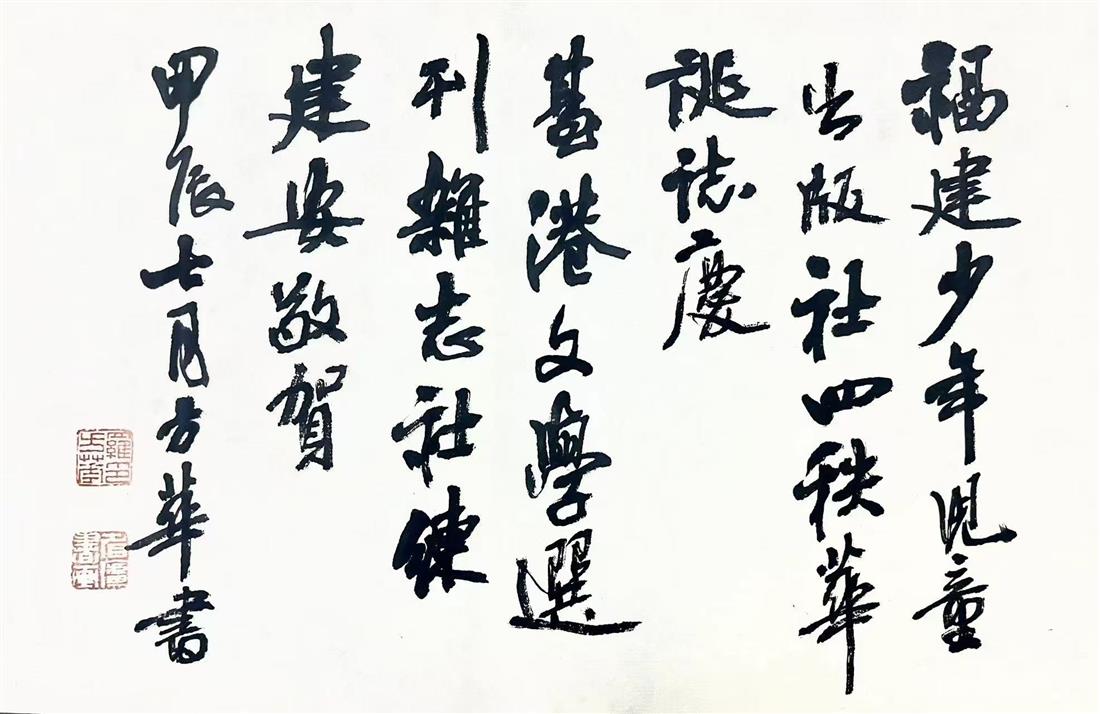 福建少年兒童
出版社四秩華
誕誌慶
臺港文學選
刊雜志社練
建安敬賀
甲辰七月方華書